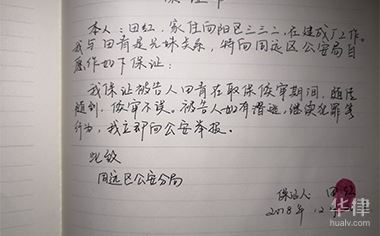 保证书
本人：田红，家住向阳区三三二，在建成厂工作。
我与田青是兄妹关系，特向周远区公安局自
愿作如下保证：
我保证被告人田青在取保候审期间，随传
随到，候审不误。被告人如有潜逃、继续犯罪等
行为，我立即向公安举报。
此致
周远区公安分局
保证人：田红
2018年12
华律
hualv.com